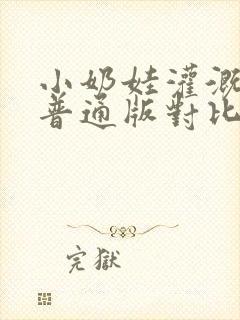 小奶娃灌溉
普通版對比
完獄